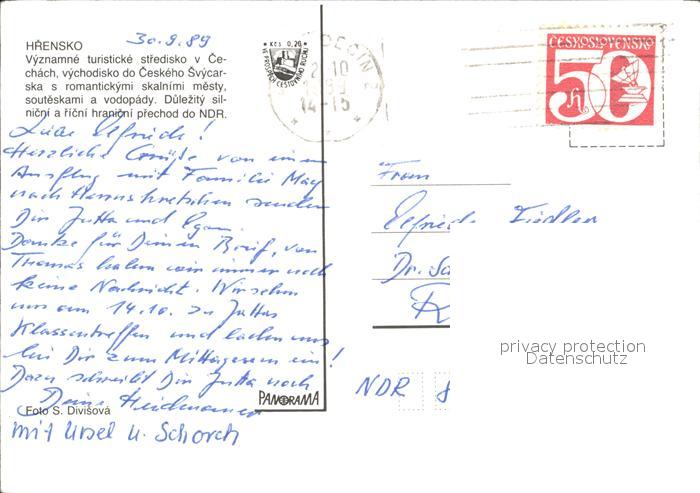 30.9.89
HŘENSKO
Významné turistické středisko v Če-
chách, východisko do Českého Švýcar-
ska s romantickými skalními městy,
soutěskami a vodopády. Důležitý sil-
niční a říční hraniční přechod do NDR.
Liebe Elfriede!
Herzliche Grüße von einem
Ausflug mit Familie May
nach Herrnskretschen senden
Dir Jutta und Egon.
Danke für Deinen Brief, von
Thomas haben wir immer noch
keine Nachricht. Wir sehen
uns am 14.10. zu Juttas
Klassentreffen und laden uns
bei Dir zum Mittagessen ein!
Dazu schreibt Dir Jutta noch
Deine
Foto S. Divišová
mit Ursel u. Schorch
PANORAMA
Kčs 0,20
VE PROSPĚCH CESTOVNÍHO RUCHU
DĚČÍN 2
2.10
89
14-15
ČESKOSLOVENSKO
50
h
Frau
Elfriede Fiedler
Dr. Sc
R
NDR 8
privacy protection
Datenschutz